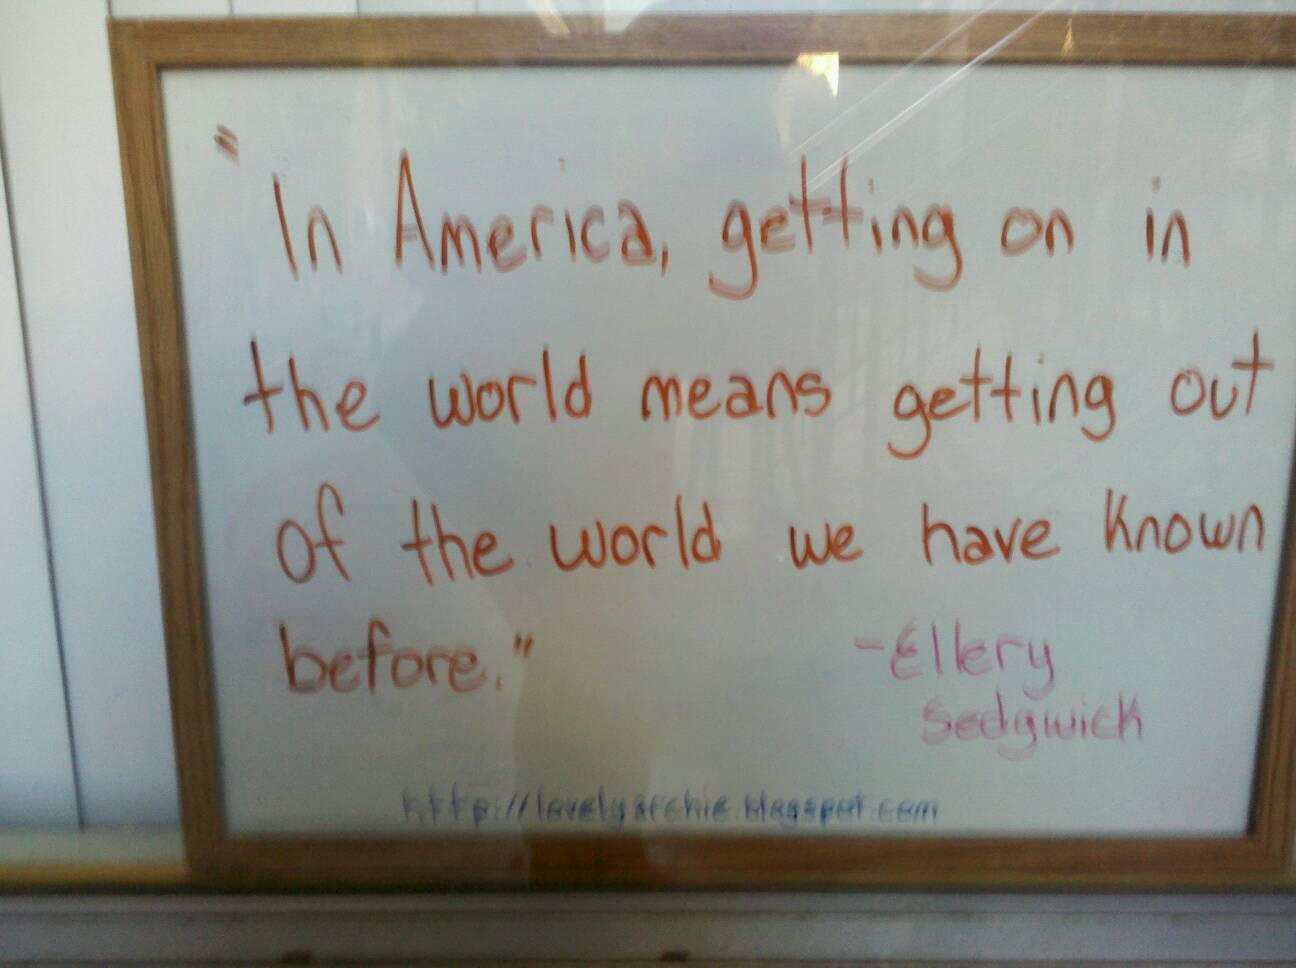 "In America, getting on in
the world means getting out
of the world we have known
before."
-Ellery
Sedgwick
http://lovelyarchie.blogspot.com